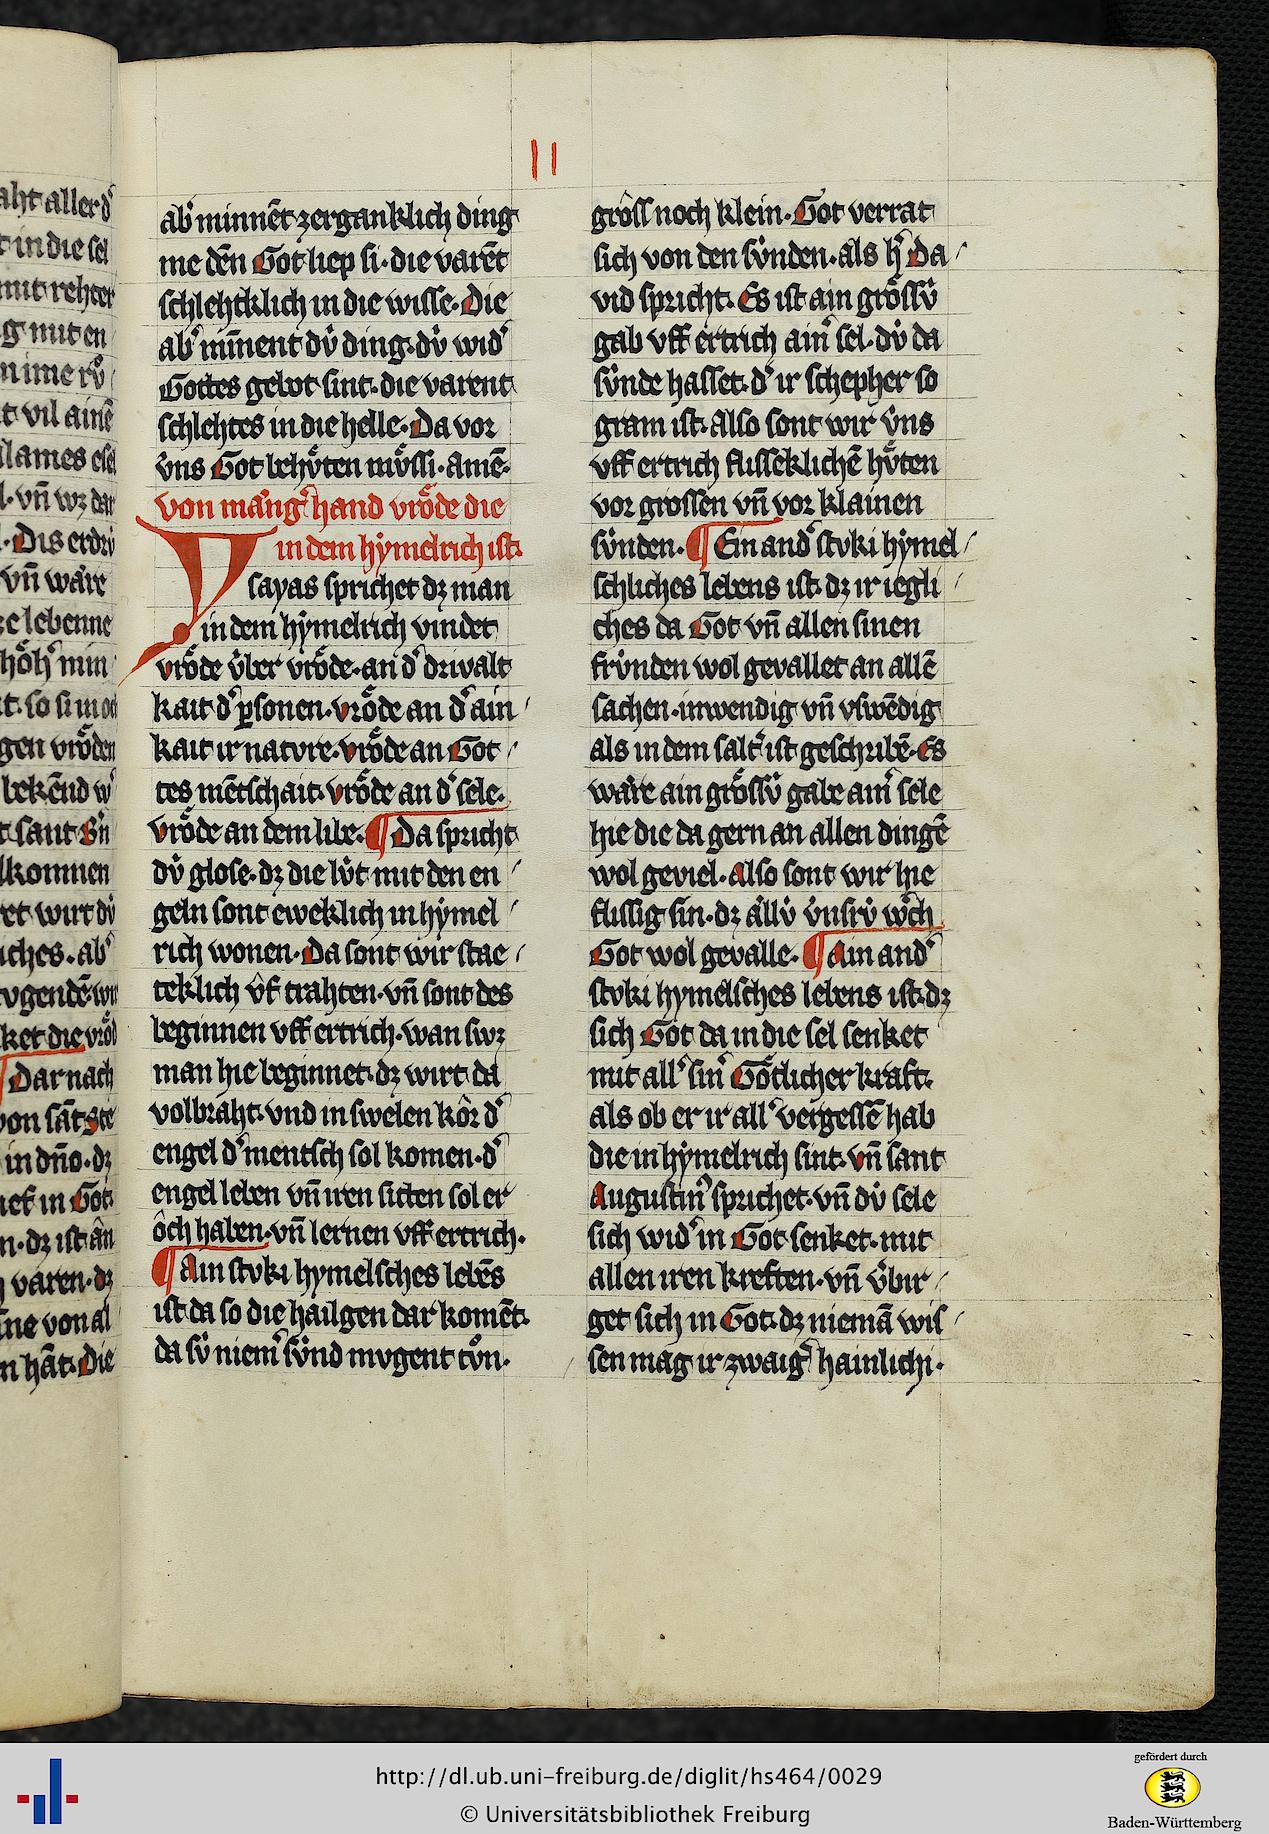 II
abˀ minnēt zerganklich ding
me dēn Got liep si · die varēt
schlehtklich in die wisse · Die
abˀ mīnent dv̍ ding · dv̍ widˀ
Gottes gebot sint · die varent
schlehtes in die helle · Da vor
v̍ns Got behv̍ten mv̍ssi · Amē ·
von mangˀhand vrͦde die
in dem hẏmelrich ist ·
Ysayas sprichet dz man
in dem hẏmelrich vindet
vrͦde v̍ber vrͦde · an dˀ drivalt
kait dˀ ꝑsonen · vrͦde an dˀ ain
kait ir natvre · vrͦde an Got
tes mētschait · vrͦde an dˀ sele ·
vrͦde an dem libe · ¶ Da spricht
dv̍ glose · dz die lv̍t mit den en
geln sont eweklich in hẏmel
rich wonen · Da sont wir stae
teklich v̂f trahten · vn̄ sont des
beginnen vff ertrich · wan swz
man hie beginnet · dz wirt da
volbrâht · vnd in swelen kôr dˀ
engel dˀ mentsch sol komen · dˀ
engel leben vn̄ iren sitten sol er
ôch haben · vn̄ lernen vff ertrich ·
¶ Ain stvki hymelsches lebēs
ist da so die hailgen dar komēt ·
da sv̍ niemˀ sv̍nd mvgent tv̊n ·
grôss noch klein · Got verrat
sich von den sv̍nden · als hˀ Da
vid spricht · Es ist ain grôssv̍
gab vff ertrich ainˀ sel · dv̍ da
sv̍nde hasset · dˀ ir schepher so
gram ist · also sont wir v̍ns
vff ertrich flisseklichē hv̍ten
vor grossen vn̄ vor klainen
sv̍nden · ¶ Ein andˀ stvki hẏmel
schliches lebens ist · dz ir iegli
ches da Got vn̄ allen sinen
frv̍nden wol gevallet an allē
sachen · inwendig vn̄ vswēdig
als in dem saltˀ ist geschribē · Es
wåre ain grôssv̍ gabe ainˀ sele
hie die da gern an allen dingē
wol geviel · Also sont wir hie
flissig sin · dz ållv̍ v̍nsrv̍ wˀch
Got wol gevalle · ¶ Ain andˀ
stvki hymelsches lebens ist · dz
sich Got da in die sel senket
mit allˀ sinˀ Gôtlicher kraft ·
als ob er ir allˀ vergessē hab
die in hẏmelrich sint · vn̄ sant
Augustinˀ sprichet · vn̄ dv̍ sele
sich widˀ in Got senket · mit
allen iren kreften · vn̄ v̍bir
get sich in Got · dz niemā wis
sen mag ir zwaigˀ hainlichi ·
http://dl.ub.uni-freiburg.de/diglit/hs464/0029
© Universitätsbibliothek Freiburg
gefördert durch
Baden-Württemberg